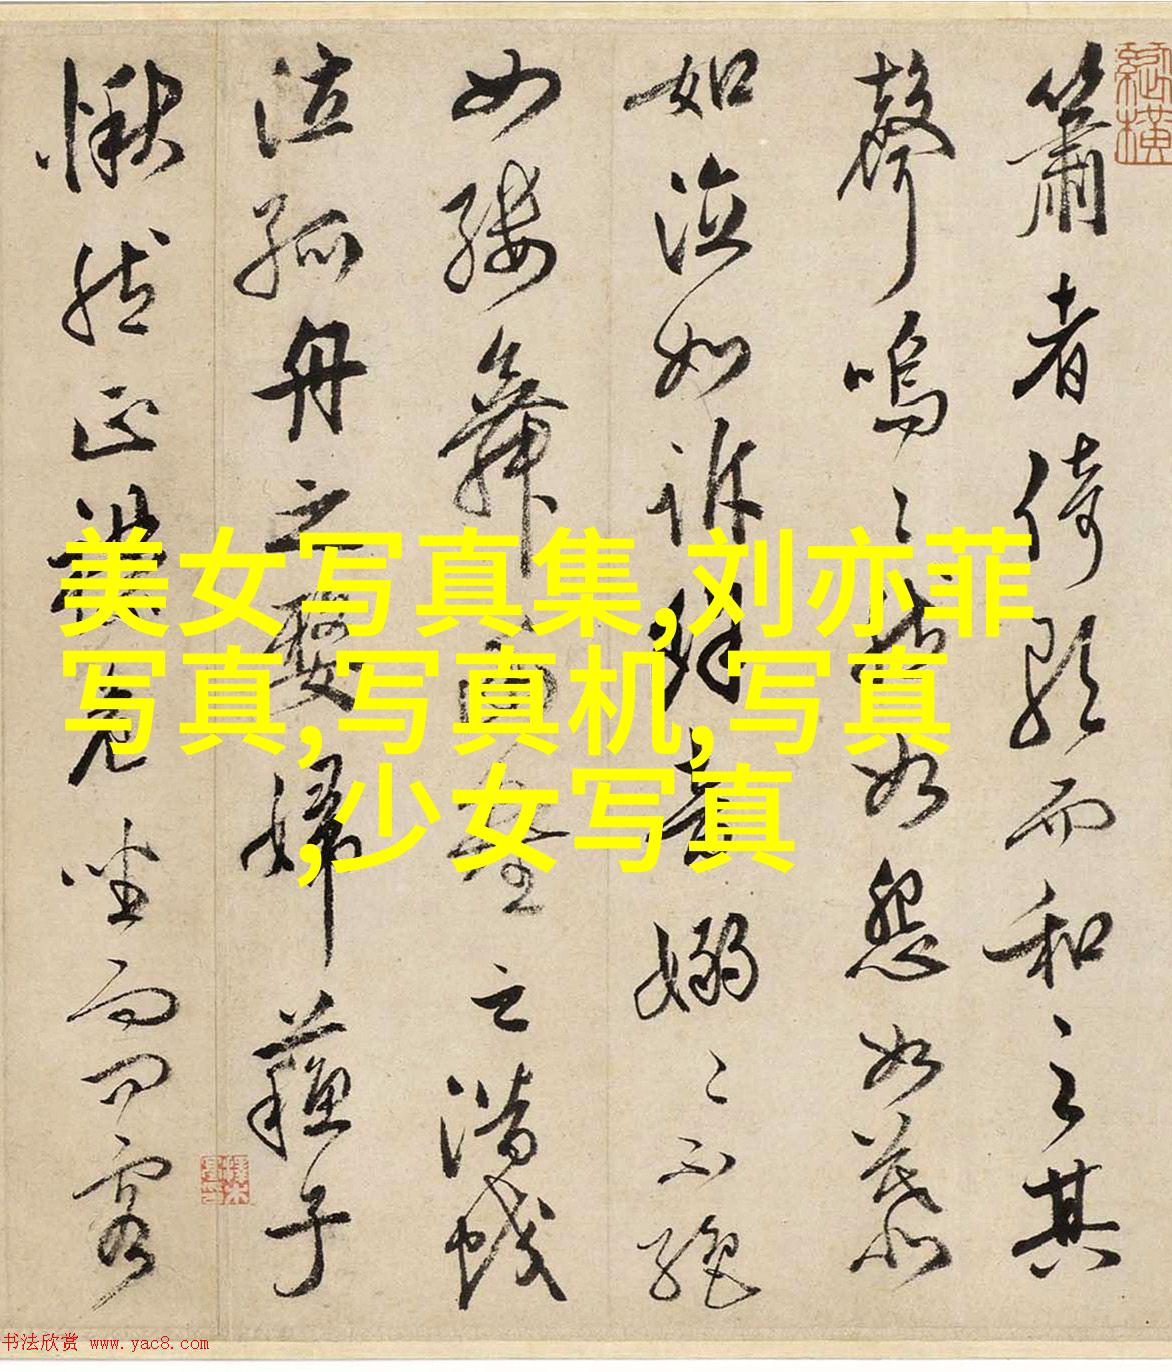 簫者倚歌而和之其
聲嗚〻然如怨如慕
如泣如訴餘音嫋〻不絕
如縷舞幽壑之潛蛟
泣孤舟之嫠婦蘇子
愀然正襟危坐而問客
美女写真集,刘亦菲
写真,写真机,写真
,少女写真
书法欣赏 www.yac8.com